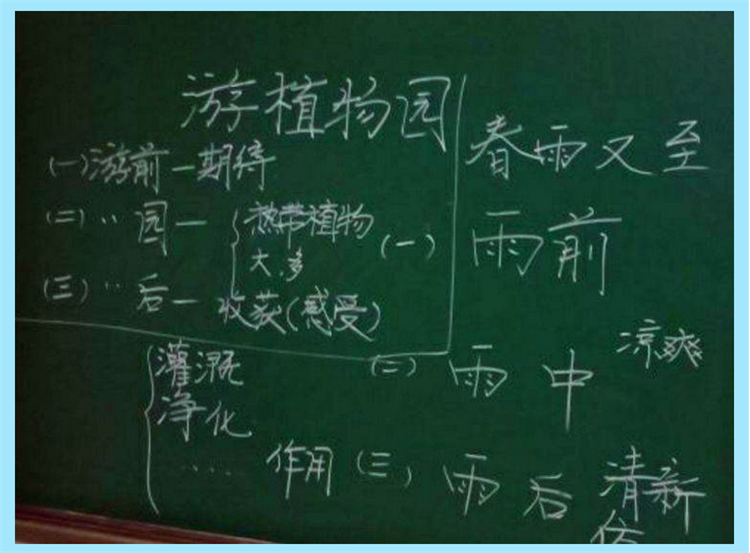 游植物园
(一)游前—期待
(二)‥园—{热带植物
大、多
(三)‥后—收获(感受)
春雨又至
(一) 雨前
(二) 雨中 凉爽
{灌溉
净化
‥‥ 作用
(三) 雨后 清新